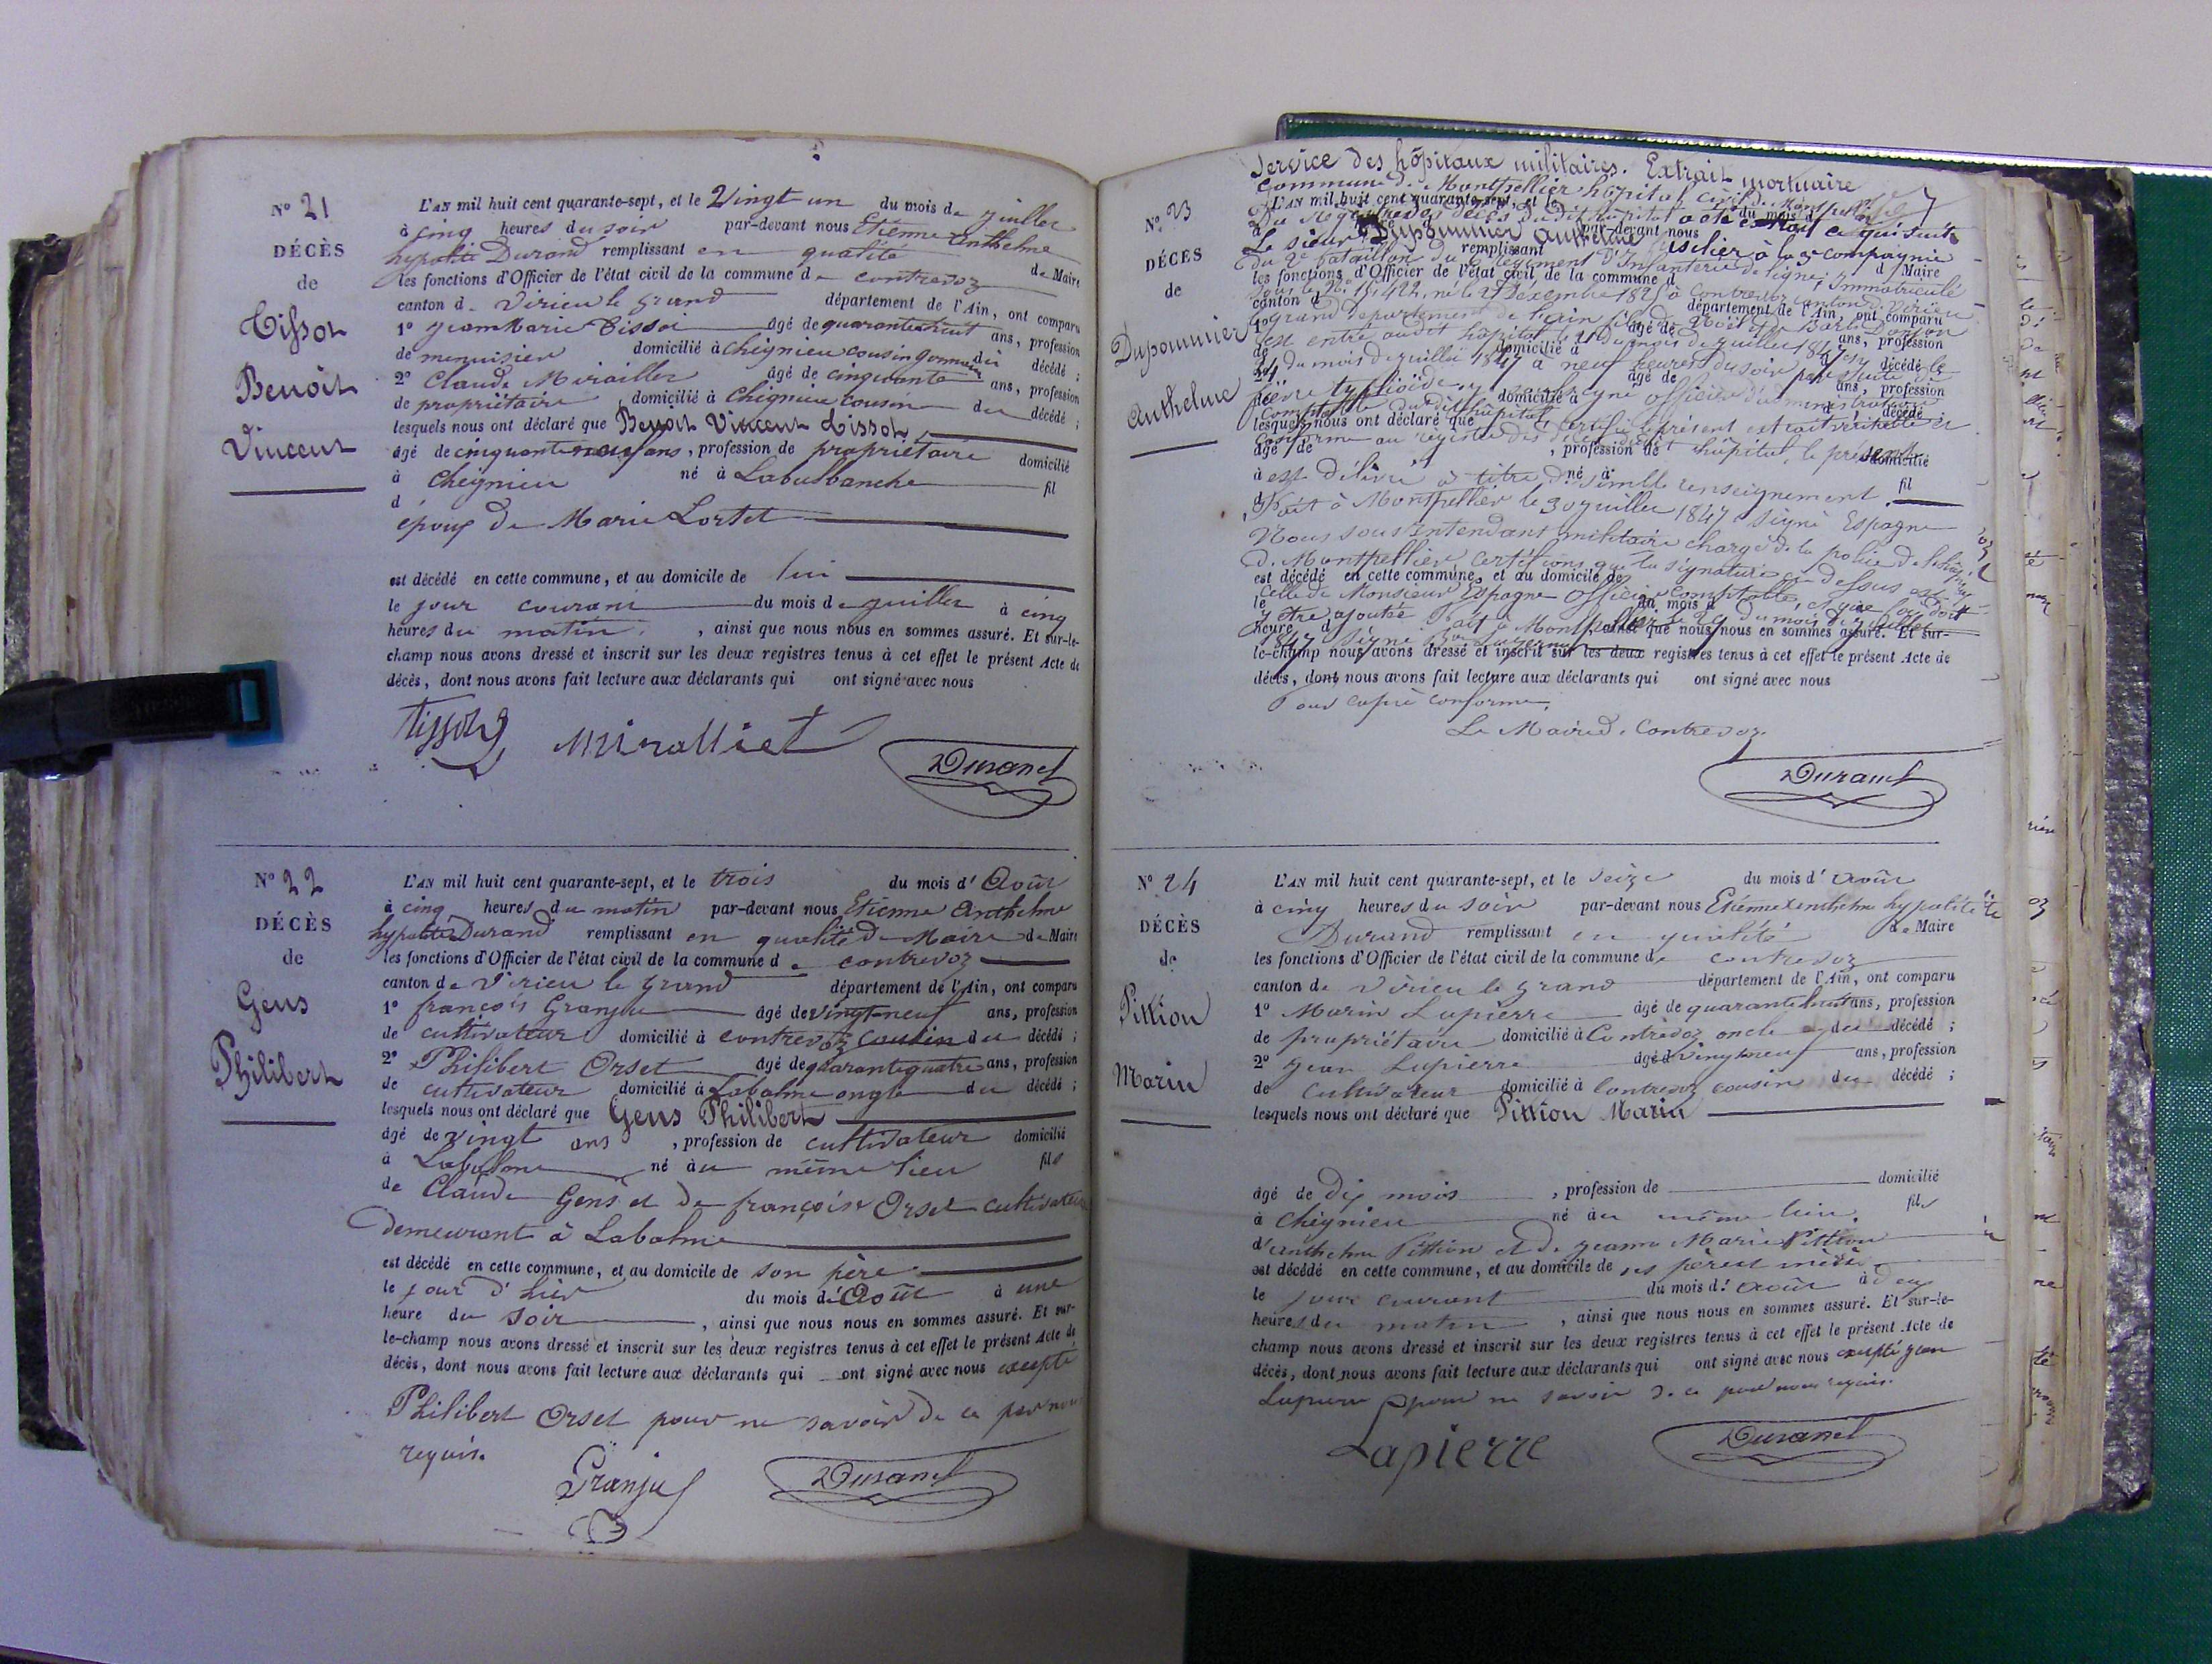 N° 21
DÉCÈS
de
Tissot
Benoit
Vincent
L'AN mil huit cent quarante-sept, et le Vingt un du mois de juillet
à cinq heures du soir par-devant nous Etienne Anthelme
hypolite Durand remplissant en qualité de Maire
les fonctions d'Officier de l'état civil de la commune de contrevoz
canton de Virieu le grand département de l'Ain, ont comparu
1° Jean Marie Tissot âgé de quarante huit ans, profession
de menuisier domicilié à cheignieu cousin germain du décédé ;
2° Claude Mirailler âgé de cinquante ans, profession
de propriétaire domicilié à Cheignieu cousin du décédé ;
lesquels nous ont déclaré que Benoit Vincent Tissot
âgé de cinquante neuf ans, profession de propriétaire domicilié
à cheignieu né à Laburbanche fil
d
époux de Marie Lortet
est décédé en cette commune, et au domicile de lui
le jour courant du mois de juillet à cinq
heures du matin, ainsi que nous nous en sommes assuré. Et sur-le-
champ nous avons dressé et inscrit sur les deux registres tenus à cet effet le présent Acte de
décès, dont nous avons fait lecture aux déclarants qui ont signé avec nous
Tissot Miralliet
Durand
N° 22
DÉCÈS
de
Gens
Philibert
L'AN mil huit cent quarante-sept, et le trois du mois d' Août
à cinq heures du matin par-devant nous Etienne Anthelme
hypolite Durand remplissant en qualité de Maire de Maire
les fonctions d'Officier de l'état civil de la commune de contrevoz
canton de Virieu le grand département de l'Ain, ont comparu
1° françois Granju âgé de vingt-neuf ans, profession
de cultivateur domicilié à contrevoz cousin du décédé ;
2° Philibert Orset âgé de quarante quatre ans, profession
de cultivateur domicilié à Labalme oncle du décédé ;
lesquels nous ont déclaré que Gens Philibert
âgé de vingt ans, profession de cultivateur domicilié
à Labalme né au même lieu fils
de Claude Gens et de françoise Orset cultivateurs
demeurant à Labalme
est décédé en cette commune, et au domicile de son père
le jour d'hier du mois d' Août à une
heure du soir, ainsi que nous nous en sommes assuré. Et sur-
le-champ nous avons dressé et inscrit sur les deux registres tenus à cet effet le présent Acte de
décès, dont nous avons fait lecture aux déclarants qui ont signé avec nous excepté
Philibert Orset pour ne savoir de ce par nous
requis.
Granju Durand
N° 23
DÉCÈS
de
Duponnier
Anthelme
Service des hôpitaux militaires. Extrait mortuaire
Commune de Montpellier hôpital civil de Montpellier
L'AN mil huit cent quarante-sept, et le du mois d
Du Registre des décès dudit hôpital a été extrait ce qui suit
à par-devant nous
Le sieur Duponnier Anthelme fusilier à la 3e compagnie
remplissant d Maire
du 2e bataillon du régiment d'Infanterie de ligne, immatriculé
les fonctions d'Officier de l'état civil de la commune d
sous le No 15,422, né le 21 Décembre 1825 à Contrevoz canton de Virieu
canton d département de l'Ain, ont comparu
le grand département de l'ain fils de Noël et de Barbe
1° âgé de ans, profession
est entré audit hôpital le du mois de juillet 1847
de domicilié à décédé
24 du mois de juillet 1847 à neuf heures du soir par suite de
2° âgé de ans, profession
fièvre typhoïde. soussigné officier d'administration
de domicilié à décédé ;
comptable dudit hôpital certifie le présent extrait véritable et
lesquels nous ont déclaré que
conforme au registre des décès dudit hôpital, le présent
âgé de , profession de domicilié
à est délivré à titre de simple renseignement.
né à fil
Fait à Montpellier le 30 juillet 1847 signé Espagne
Nous sous intendant militaire chargé de la police de l'hôpital
de Montpellier certifions que la signature ci dessus est
est décédé en cette commune, et au domicile de
celle de Monsieur Espagne officier comptable, et que foi doit
le du mois d
y être ajoutée Fait à Montpellier le 29 du mois de juillet
heure d , ainsi que nous nous en sommes assuré. Et sur-
1847 signé
le-champ nous avons dressé et inscrit sur les deux registres tenus à cet effet le présent Acte de
décès, dont nous avons fait lecture aux déclarants qui ont signé avec nous
Pour copie conforme,
Le Maire de Contrevoz.
Durand
N° 24
DÉCÈS
de
Pittion
Marin
L'AN mil huit cent quarante-sept, et le seize du mois d' Août
à cinq heures du soir par-devant nous Etienne Anthelme hypolite
Durand remplissant en qualité de Maire
les fonctions d'Officier de l'état civil de la commune de contrevoz
canton de Virieu le grand département de l'Ain, ont comparu
1° Marin Lapierre âgé de quarante huit ans, profession
de propriétaire domicilié à Contrevoz oncle du décédé ;
2° Jean Lapierre âgé de vingt neuf ans, profession
de cultivateur domicilié à Contrevoz cousin du décédé ;
lesquels nous ont déclaré que Pittion Marin
âgé de dix mois, profession de domicilié
à Cheignieu né au même lieu. fils
d'anthelme Pittion et de jeanne Marie Pittion
est décédé en cette commune, et au domicile de ses père et mère
le jour courant du mois d' Août à deux
heures du matin, ainsi que nous nous en sommes assuré. Et sur-le-
champ nous avons dressé et inscrit sur les deux registres tenus à cet effet le présent Acte de
décès, dont nous avons fait lecture aux déclarants qui ont signé avec nous excepté jean
Lapierre pour ne savoir de ce par nous requis.
Lapierre Durand